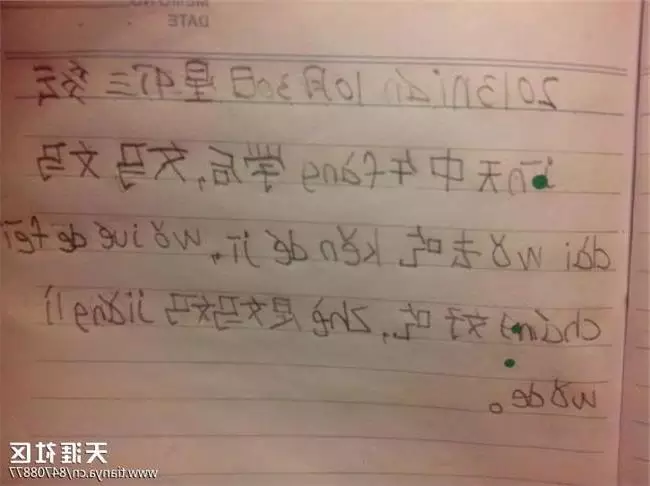 MEMO NO.
DATE
2013nián 10月30日 星qī三 多云
jīn天中午fàng学后,妈妈
dài wǒ去吃kěn dé jī, wǒ jué de fēi
cháng好吃,zhè是妈妈jiǎng lì
wǒ de。
天涯社区
www.tianya.cn/84708877